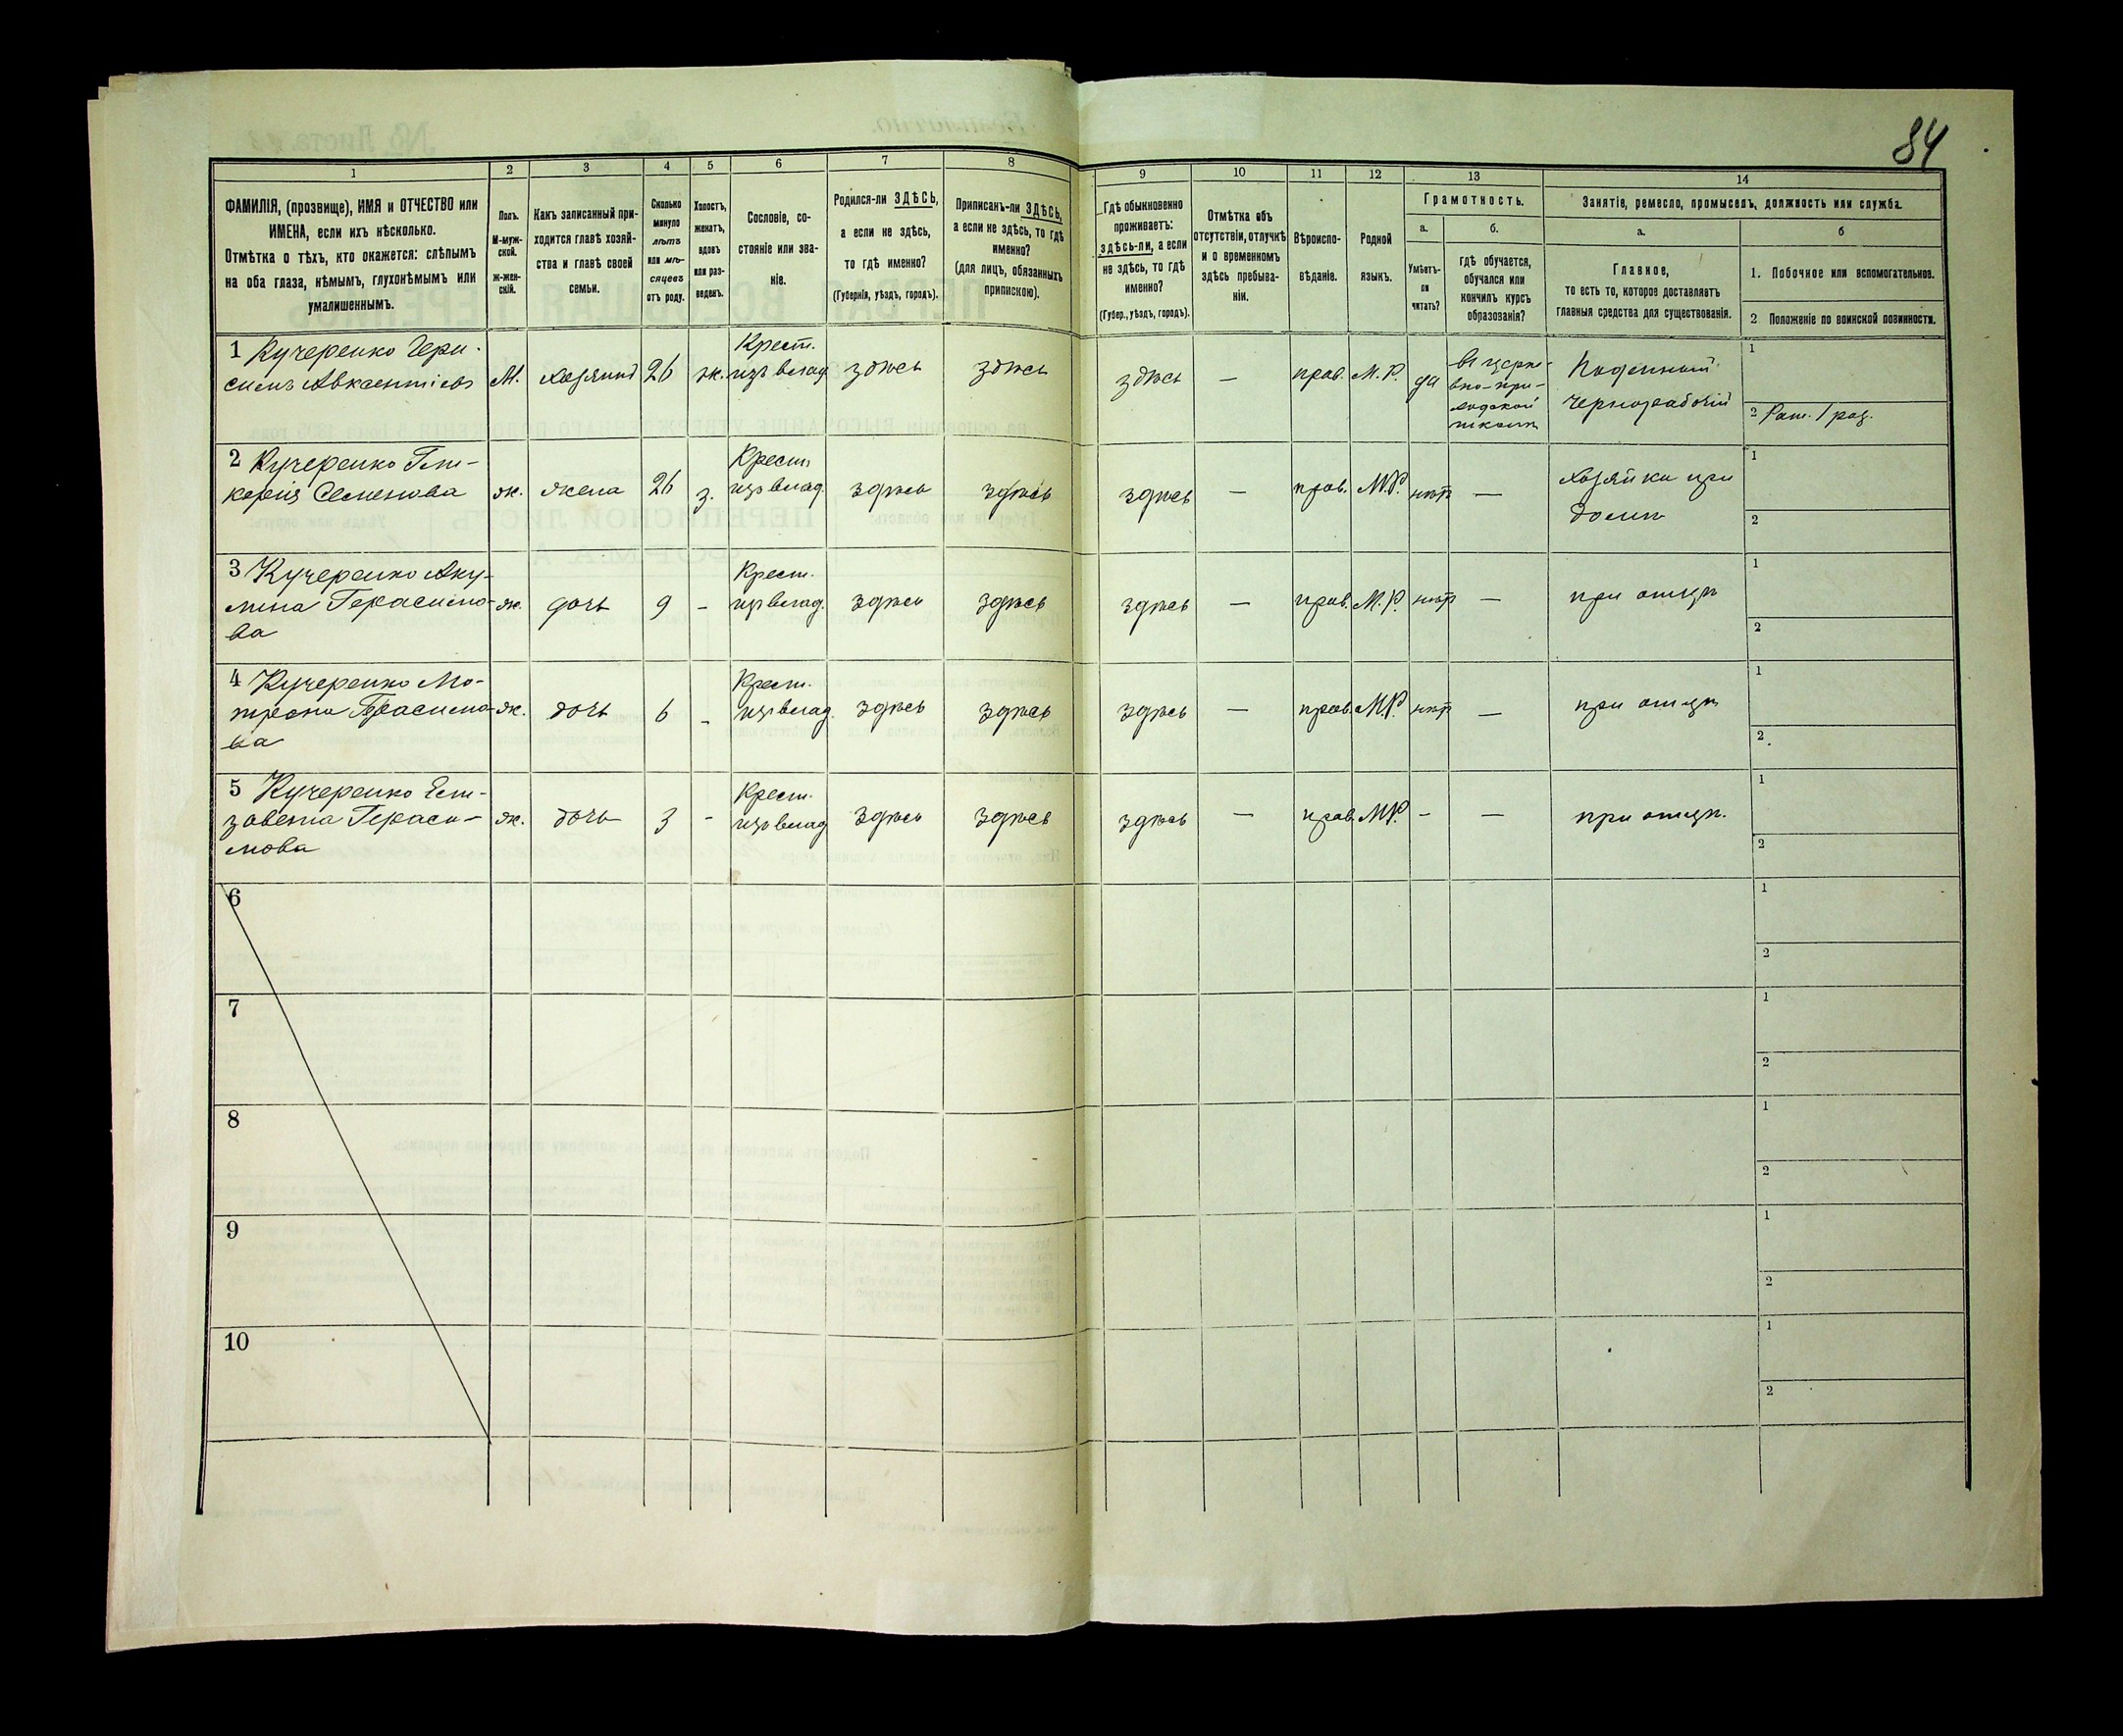 84
1
2
3
4
5
6
7
8
9
10
11
12
13
14
ФАМИЛІЯ, (прозвище), ИМЯ и ОТЧЕСТВО или
ИМЕНА, если ихъ нѣсколько.
Отмѣтка о тѣхъ, кто окажется: слѣпымъ
на оба глаза, нѣмымъ, глухонѣмымъ или
умалишеннымъ.
Полъ.
М-муж-
ской.
ж-жен-
скій.
Какъ записанный при-
ходится главѣ хозяй-
ства и главѣ своей
семьи.
Сколько
минуло
лѣтъ
или мѣ-
сяцевъ
отъ роду.
Холостъ,
женатъ,
вдовъ
или раз-
веденъ.
Сословіе, со-
стояніе или зва-
ніе.
Родился-ли ЗДѢСЬ,
а если не здѣсь,
то гдѣ именно?
(Губернія, уѣздъ, городъ).
Приписанъ-ли ЗДѢСЬ,
а если не здѣсь, то гдѣ
именно?
(для лицъ, обязанныхъ
припискою).
Гдѣ обыкновенно
проживаетъ:
здѣсь-ли, а если
не здѣсь, то гдѣ
именно?
(Губер., уѣздъ, городъ).
Отмѣтка объ
отсутствіи, отлучкѣ
и о временномъ
здѣсь пребыва-
ніи.
Вѣроиспо-
вѣданіе.
Родной
языкъ.
Грамотность.
а.
Умѣетъ-
ли
читать?
б.
гдѣ обучается,
обучался или
кончилъ курсъ
образованія?
Занятіе, ремесло, промыселъ, должность или служба.
а.
Главное,
то есть то, которое доставляетъ
главныя средства для существованія.
б
1. Побочное или вспомогательное.
2 Положеніе по воинской повинности.
1 Кучеренко Гера-
симъ Авксентіевъ
М.
хозяинъ
26
ж.
Крест.
изъ влад.
здѣсь
здѣсь
здѣсь
—
прав.
М.Р.
да
въ церко-
вно-при-
ходской
школѣ
Поденный
чернорабочій
1
2 Рат. 1 раз.
2 Кучеренко Гли-
керія Семенова
ж.
жена
26
з.
Крест.
изъ влад.
здѣсь
здѣсь
здѣсь
—
прав.
М.Р.
нѣтъ
—
хозяйка при
домѣ
1
2
3 Кучеренко Аку-
лина Герасимо-
ва
ж.
дочь
9
-
Крест.
изъ влад.
здѣсь
здѣсь
здѣсь
—
прав.
М.Р.
нѣтъ
—
при отцѣ
1
2
4 Кучеренко Мо-
трона Герасимо-
ва
ж.
дочь
6
-
Крест.
изъ влад.
здѣсь
здѣсь
здѣсь
—
прав.
М.Р.
нѣтъ
—
при отцѣ
1
2
5 Кучеренко Ели-
завета Гераси-
мова
ж.
дочь
3
-
Крест.
изъ влад.
здѣсь
здѣсь
здѣсь
—
прав.
М.Р.
-
—
при отцѣ.
1
2
6
1
2
7
1
2
8
1
2
9
1
2
10
1
2